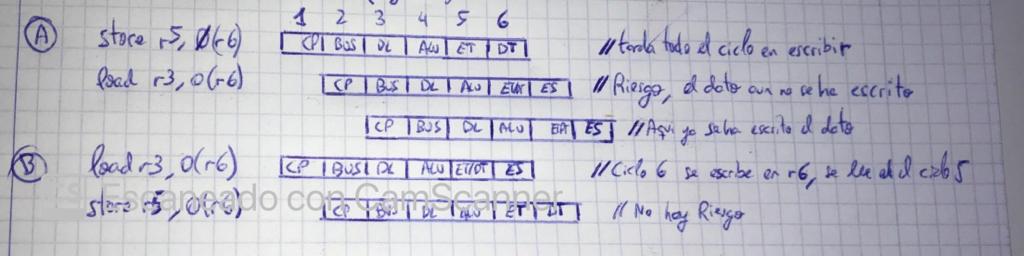 1 2 3 4 5 6
A store r5, 0(r6) CP BUS DL ALU ET DT // tarda todo el ciclo en escribir
load r3, 0(r6) CP BUS DL ALU ET/DT ES // Riesgo, el dato aun no se ha escrito
CP BUS DL ALU ES // Aquí ya se ha escrito el dato
B load r3, 0(r6) CP BUS DL ALU ET/DT ES // Ciclo 6 se escribe en r6, se lee el ciclo 5
Escaneado con CamScanner
store r5, 0(r6) CP BUS DL ALU ET DT // No hay Riesgo